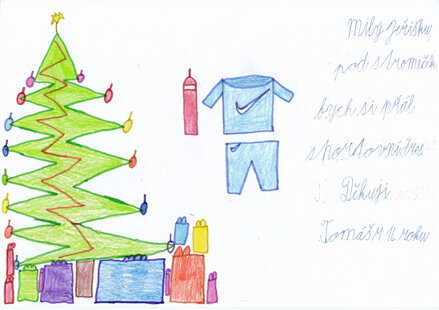 Milý Ježíšku,
pod stromeček
bych si přál
sportovní dres.
Děkuji
Tomáš 11 roků